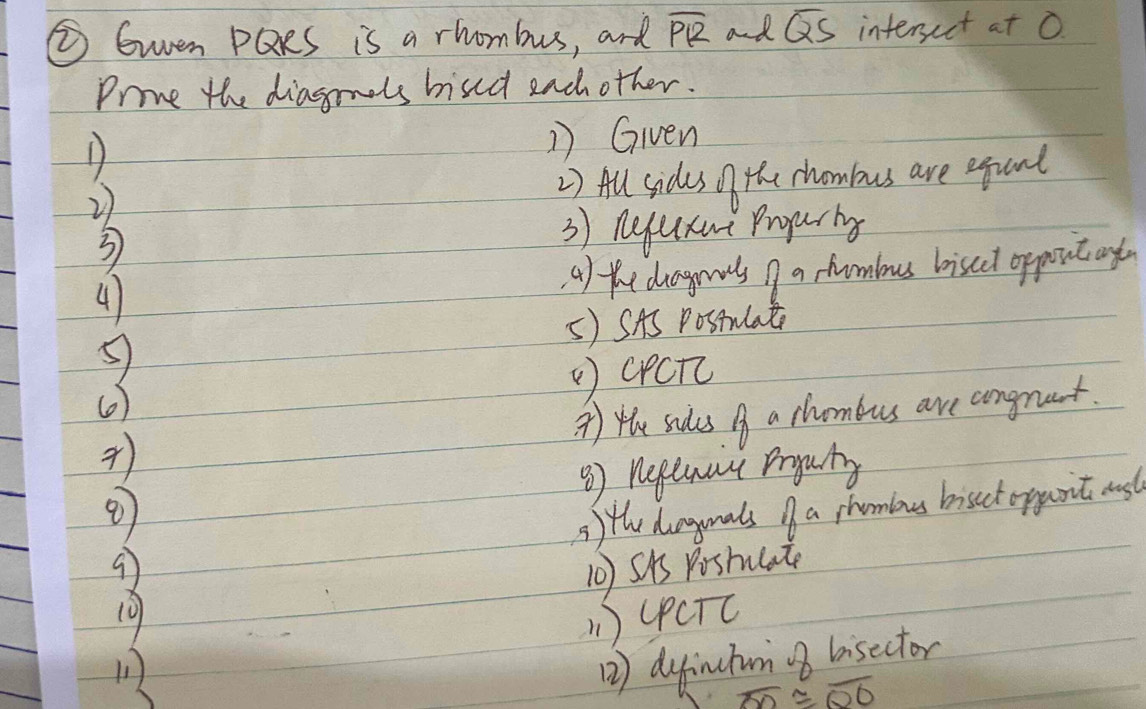 ② Given PQRS is a rhombus, and PR and QS intersect at O.
Prove the diagonals bisect each other.
1) 1) Given
2) 2) All sides of the rhombus are equal
3) 3) Reflexive Property
4) 4) the diagonals of a rhombus bisect opposite angles
5) 5) SAS Postulate
6) 6) CPCTC
7) 7) the sides of a rhombus are congruent.
8) 8) Reflexive Property
9) 9) the diagonals of a rhombus bisect opposite angle
10) 10) SAS Postulate
11) 11) CPCTC
12) definition of bisector
≅ QO